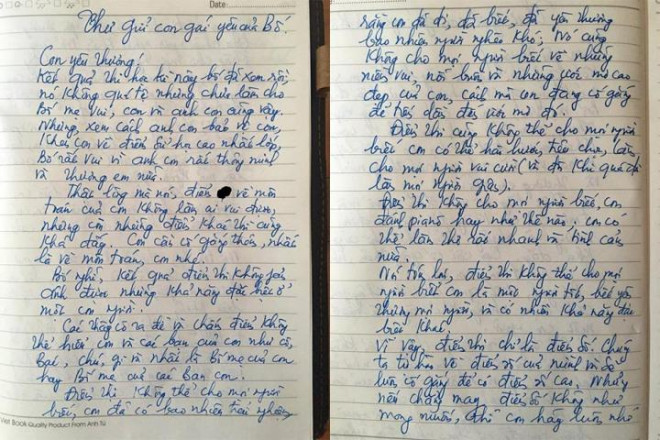 Date:
Thư gửi con gái yêu của Bố.
Con yêu thương!
Kết quả thi học kì này bố đã xem rồi
nó không quá tệ nhưng chưa làm cho
Bố mẹ vui, con và anh con cũng vậy.
Nhưng, xem cách anh con bảo vệ con,
khi con về điểm bị hạ cao nhất lớp,
Bố rất vui vì anh con rất thông minh
và thương em nữa.
Thật lòng mà nói, điểm về môn
toán của con không làm ai vui được,
nhưng con những điểm khác thì cũng
khá đấy. Con cần cố gắng thêm, nhất
là về môn toán, con nhé.
Bố nghĩ, kết quả điểm thi không xác
định được những khả năng đặc biệt ở
một con người.
Các thầy cô ra đề và chấm điểm không
thể hiểu con và các bạn của con như cô,
Bạn, chú, gì và nhất là Bố mẹ của con
hay Bố mẹ của các bạn con.
Điểm thi không thể cho mọi người
biết, con đã có bao nhiêu trải nghiệm,
Viet Book Quality Product From Anh Tú
rằng con đã đi, đã biết, đã yêu thương
bao nhiêu người nghèo khó; Nó cũng
không cho mọi người biết về những
niềm vui, nỗi buồn và những ước mơ cao
đẹp của con, cách mà con đang cố gắng
để tiến dần đến ước mơ đó.
Điểm thi cũng không thể cho mọi người
biết con có thể hài hước, tiếu chưa, làm
cho mọi người vui cười (và đôi khi quá đà
làm mọi người giận).
Điểm thi không cho mọi người biết, con
đánh piano hay như thế nào, con có
thể làm thơ rất nhanh và tình cảm
nữa.
Nó tóm lại, điểm thi không thể cho mọi
người biết con là một người tốt, biết yêu
thương mọi người, và có nhiều khả năng đặc
biệt khác.
Vì vậy, điểm thi chỉ là điểm số. Chúng
ta tự hào về điểm số của mình và do
luôn cố gắng để có điểm số cao. Nhưng
nếu chẳng may điểm số không như
mong muốn, thì con hãy luôn nhớ